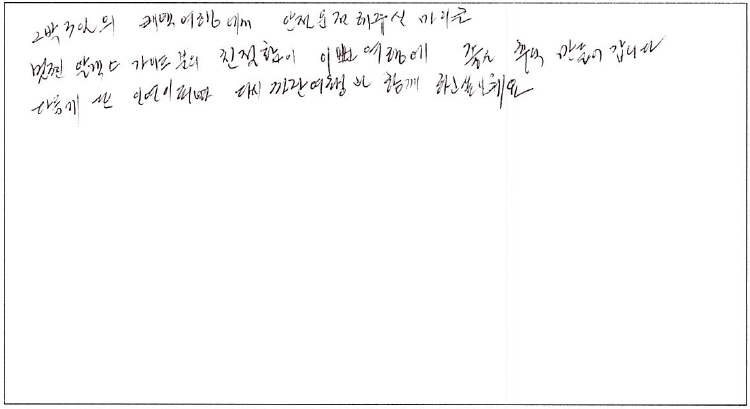 2박3일의 패택여행에서 안전운전 해주신 마이클
멋찐 알렉스 가이드 분의 친절함이 이번 여행에 좋은 추억 만들어 갑니다
다음에 또 인연이 되면 다시 여행 함께 하고싶네요